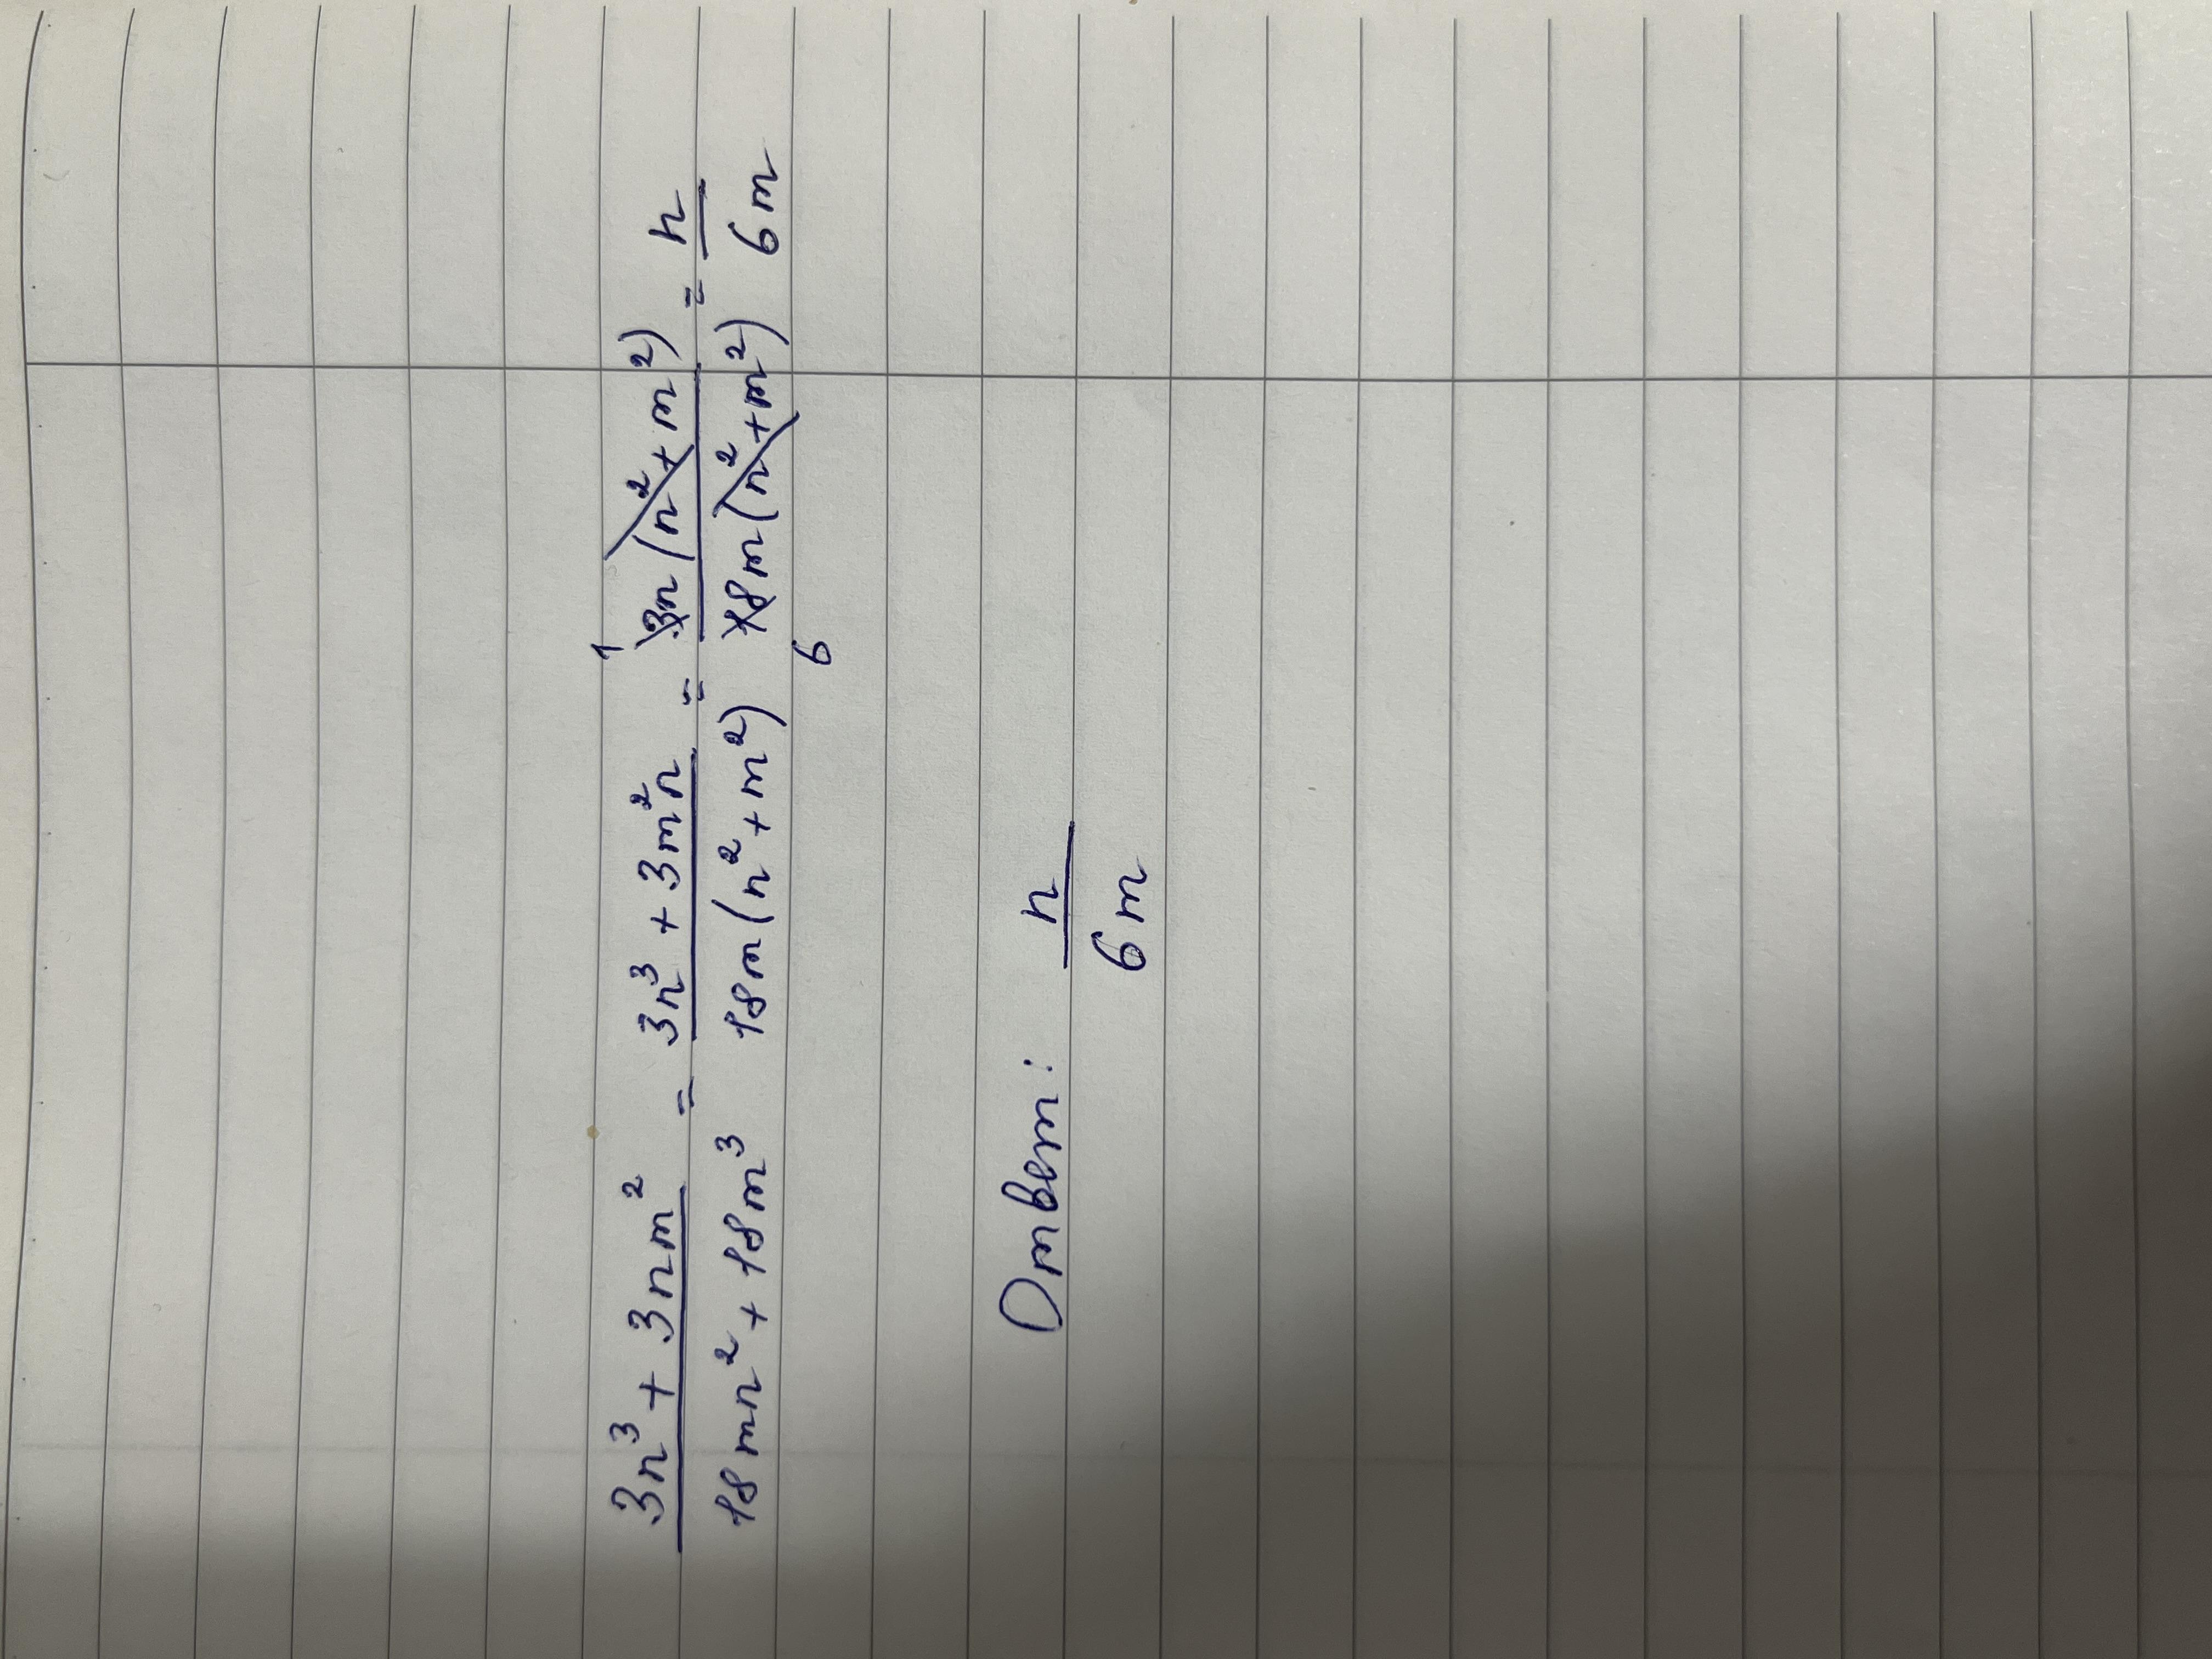 (3n³ + 3nm²)/(18mn² + 18m³) = (3n³ + 3m²n)/(18m(n² + m²)) = (3n(n² + m²))/(18m(n² + m²)) = n/6m
1
6
Ответ: n/6m